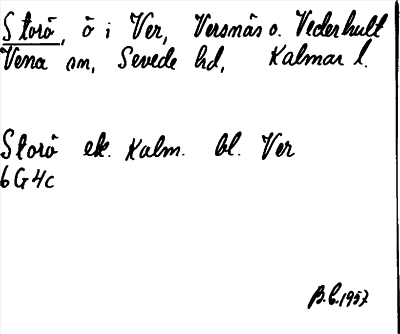 Storö, ö i Ver, Versnäs o. Vederhult
Vena sn, Sevede hd, Kalmar l.
Storö ek. Kalm. bl. Ver
6G4c
B.E.1957